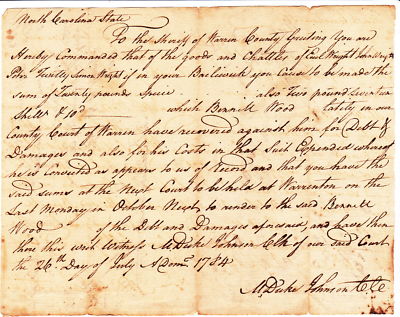 North Carolina State
To the Sheriff of Warren County Greeting You are
Hereby Commanded that of the goods and Chattles of Wright John Wright
Twitty Simon Wright if in your Baeliwick you Cause to be made the
sum of Twenty pounds Specie also Two pounds Seventeen
Shills & 10d which Bennett Wood lately in our
County Court of Warren have recovered against him for Debt &
Damages and also for his Costs in that Suit Expended whereof
he is Convicted as appears to us of Record and that you have the
said sums at the Next Court to be held at Warrenton on the
Last Monday in October Next to render to the said Bennett
Wood of the Debt and Damages aforesaid, and have then
there this writ Witness M. Duke Johnson Clk of our said Court
the 26th Day of July A Dom. 1784
M. Duke Johnson CC